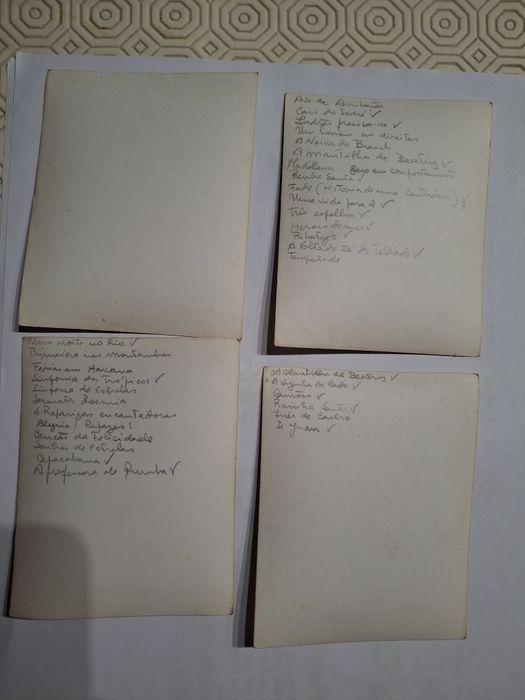 Ave de Arribação
Cais do Sodré ✓
Ladrão, precisa-se ✓
Um homem às direitas
A Noiva do Brasil
A Mantilha de Beatriz ✓
Madalena zero em comportamento
Rainha Santa ✓
Fado (História de uma Cantadeira) ✓
Uma vida para 2 ✓
Três espelhos ✓
Heróis do mar ✓
Ribatejo ✓
A Volta do Zé do Telhado ✓
Tempestade
Uma noite no Rio ✓
Primavera nas Montanhas
Férias em Havana
Sinfonia dos Trópicos ✓
Sinfonia de Estrelas
Serenata Boémia
4 Raparigas encantadoras
Alegria! Rapazes!
Canção da Felicidade
Sonho de Estrelas
Copacabana ✓
A professora de Rumba ✓
A Mantilha de Beatriz ✓
A Vizinha do Lado ✓
Camões ✓
Rainha Santa ✓
Inês de Castro
D. Juan ✓